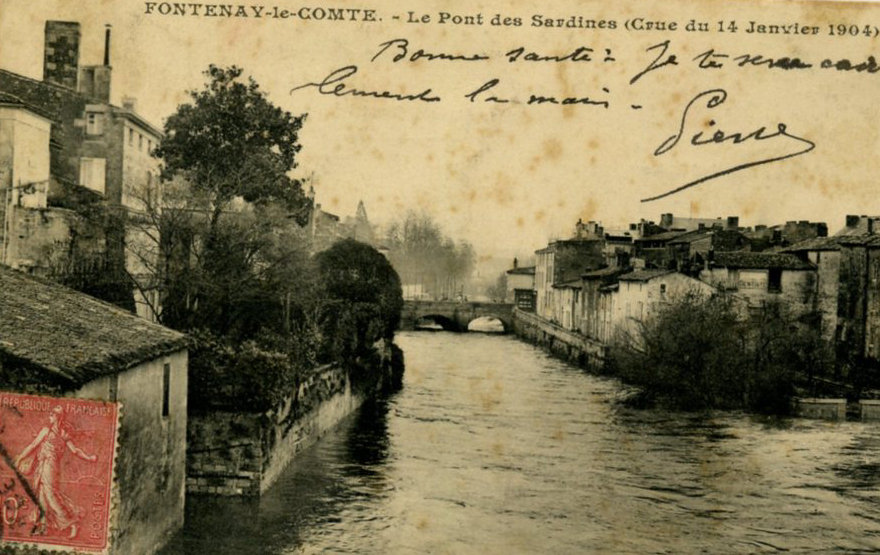 FONTENAY-le-COMTE. - Le Pont des Sardines (Crue du 14 Janvier 1904)
Bonne santé: Je te serre cor
lement la main -
Pierre
RÉPUBLIQUE FRANÇAISE
POSTES